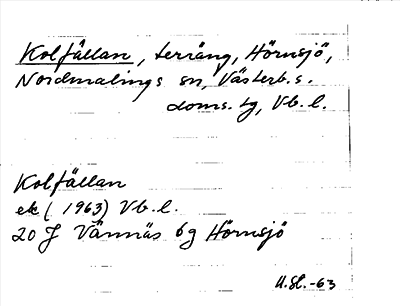 Kolfällan, terräng, Hörnsjö,
Nordmalings sn, Västerb. s.
doms. tg, Vb. l.
Kolfällan
ek (1963) Vb. l.
20 J Vännäs 6g Hörnsjö
U.St.-63